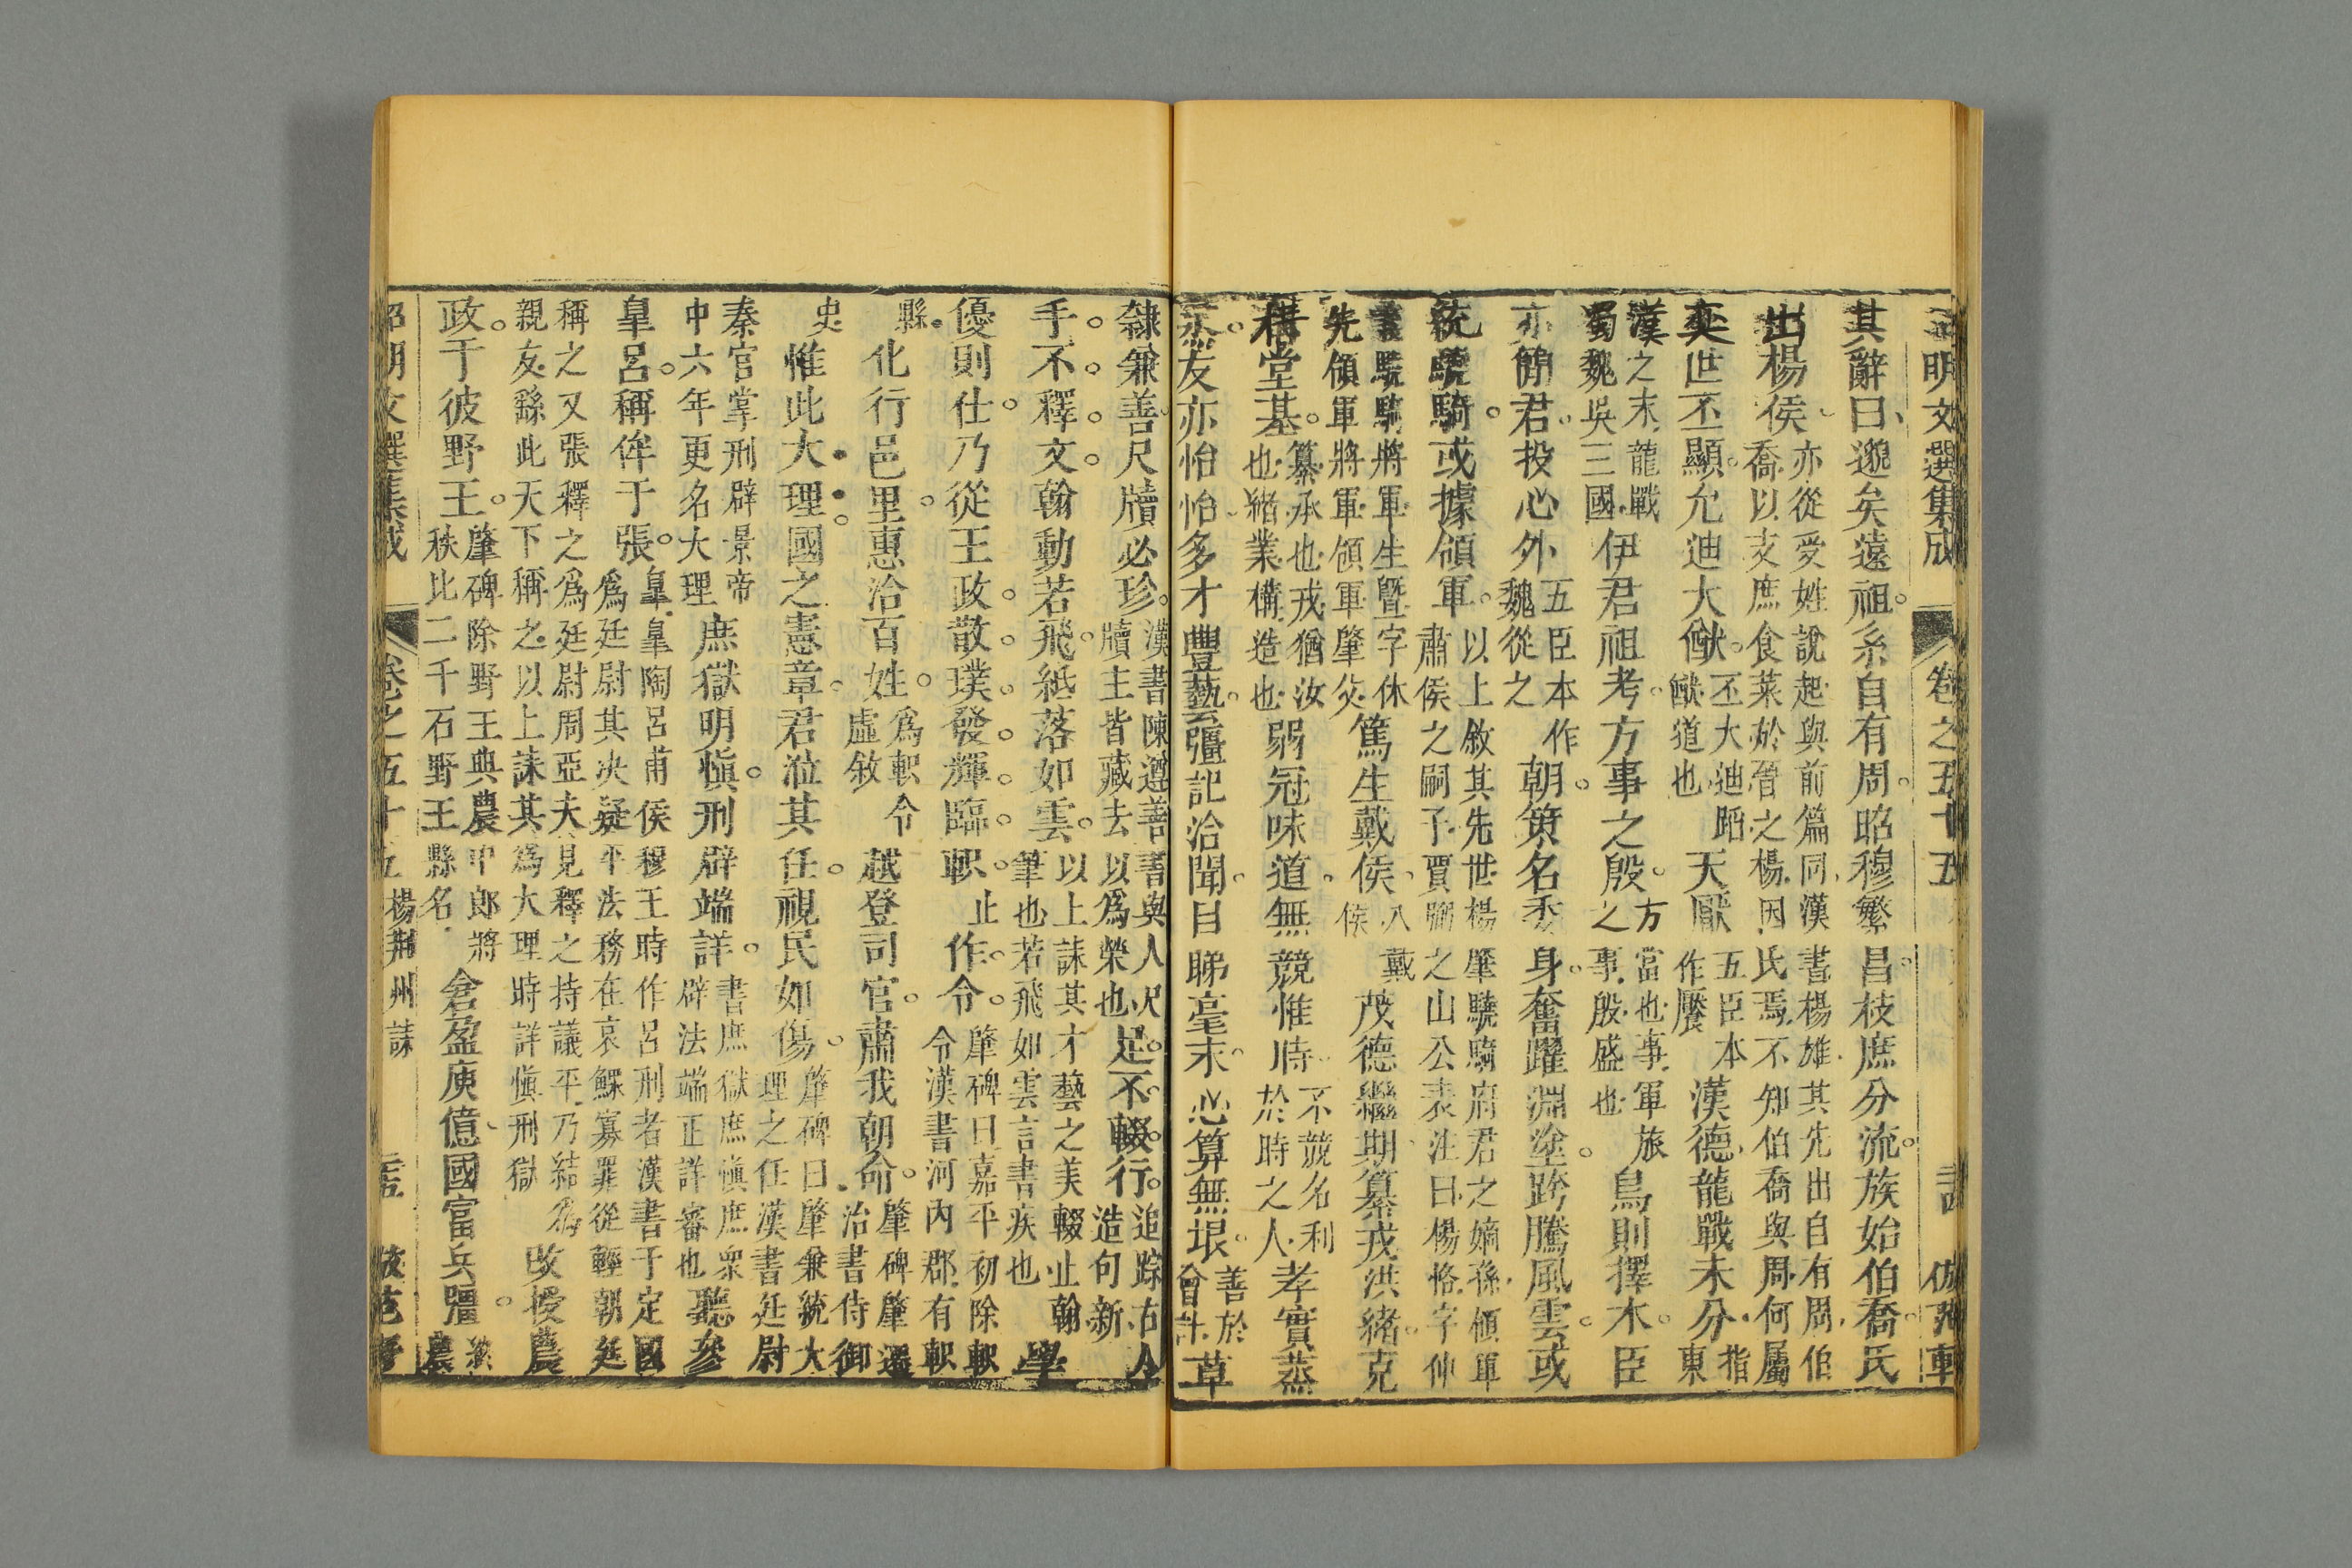 昭明文選集成 卷之五十五
其辭曰邈矣遠祖系自有周昭穆繁昌枝庶分流族始伯喬氏
出楊侯亦從受姓說起與前篇同漢書楊雄其先出自有周伯喬以支庶食菜於晉之楊因氏焉不知伯喬與周何屬
奕世丕顯允迪大猷丕大迪蹈猷道也天厭五臣本作饜漢德龍戰未分指東
漢之末龍戰蜀魏吳三國伊君祖考方事之殷方當也事軍旅之事殷盛也鳥則擇木臣
亦簡君投心外五臣本作魏從之朝策名委身奮躍淵塗跨騰風雲或
統驍騎或據領軍以上敘其先世楊肇驍騎府君之嫡孫領軍肅侯之嗣子賈弼之山公表注曰楊恪字仲
義驍騎將軍生曁字休先領軍將軍領軍肇父篤生戴侯八戴侯茂德繼期纂戎洪緒克
構堂基纂承也戎猶汝也緒業構造也弱冠味道無競惟時不競名利於時之人孝實蒸
烝友亦怡怡多才豐藝彊記洽聞目睇毫末心算無垠善於會計草
隸兼善尺牘必珍漢書陳遵善書與人尺牘主皆藏去以爲榮也足不輟行追踪古人造句新
手不釋文翰動若飛紙落如雲以上誄其才藝之美輟止翰筆也若飛如雲言書疾也學
優則仕乃從王政散璞發輝臨軹止作令肇碑曰嘉平初除軹令漢書河內郡有軹
縣化行邑里惠洽百姓爲軹令虛敘越登司官肅我朝命肇碑肇遷治書侍御
史惟此大理國之憲章君涖其任視民如傷肇碑曰肇兼統大理之任漢書廷尉
秦官掌刑辟景帝中六年更名大理庶獄明愼刑辟端詳書庶獄庶愼庶衆辟法端正詳審也聽參
皐呂稱侔于張皐皐陶呂甫侯穆王時作呂刑者漢書于定國爲廷尉其決疑平法務在哀鰥寡罪從輕朝廷
稱之又張釋之爲廷尉周亞夫見釋之持議平乃結爲親友繇此天下稱之以上誄其爲大理時詳愼刑獄改授農
政于彼野王肇碑除野王典農中郎將秩比二千石野王縣名倉盈庾億國富兵彊
昭明文選集成 卷之五十五 楊荆州誄